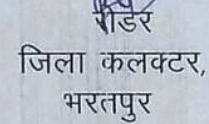 रीडर
जिला कलक्टर,
भरतपुर